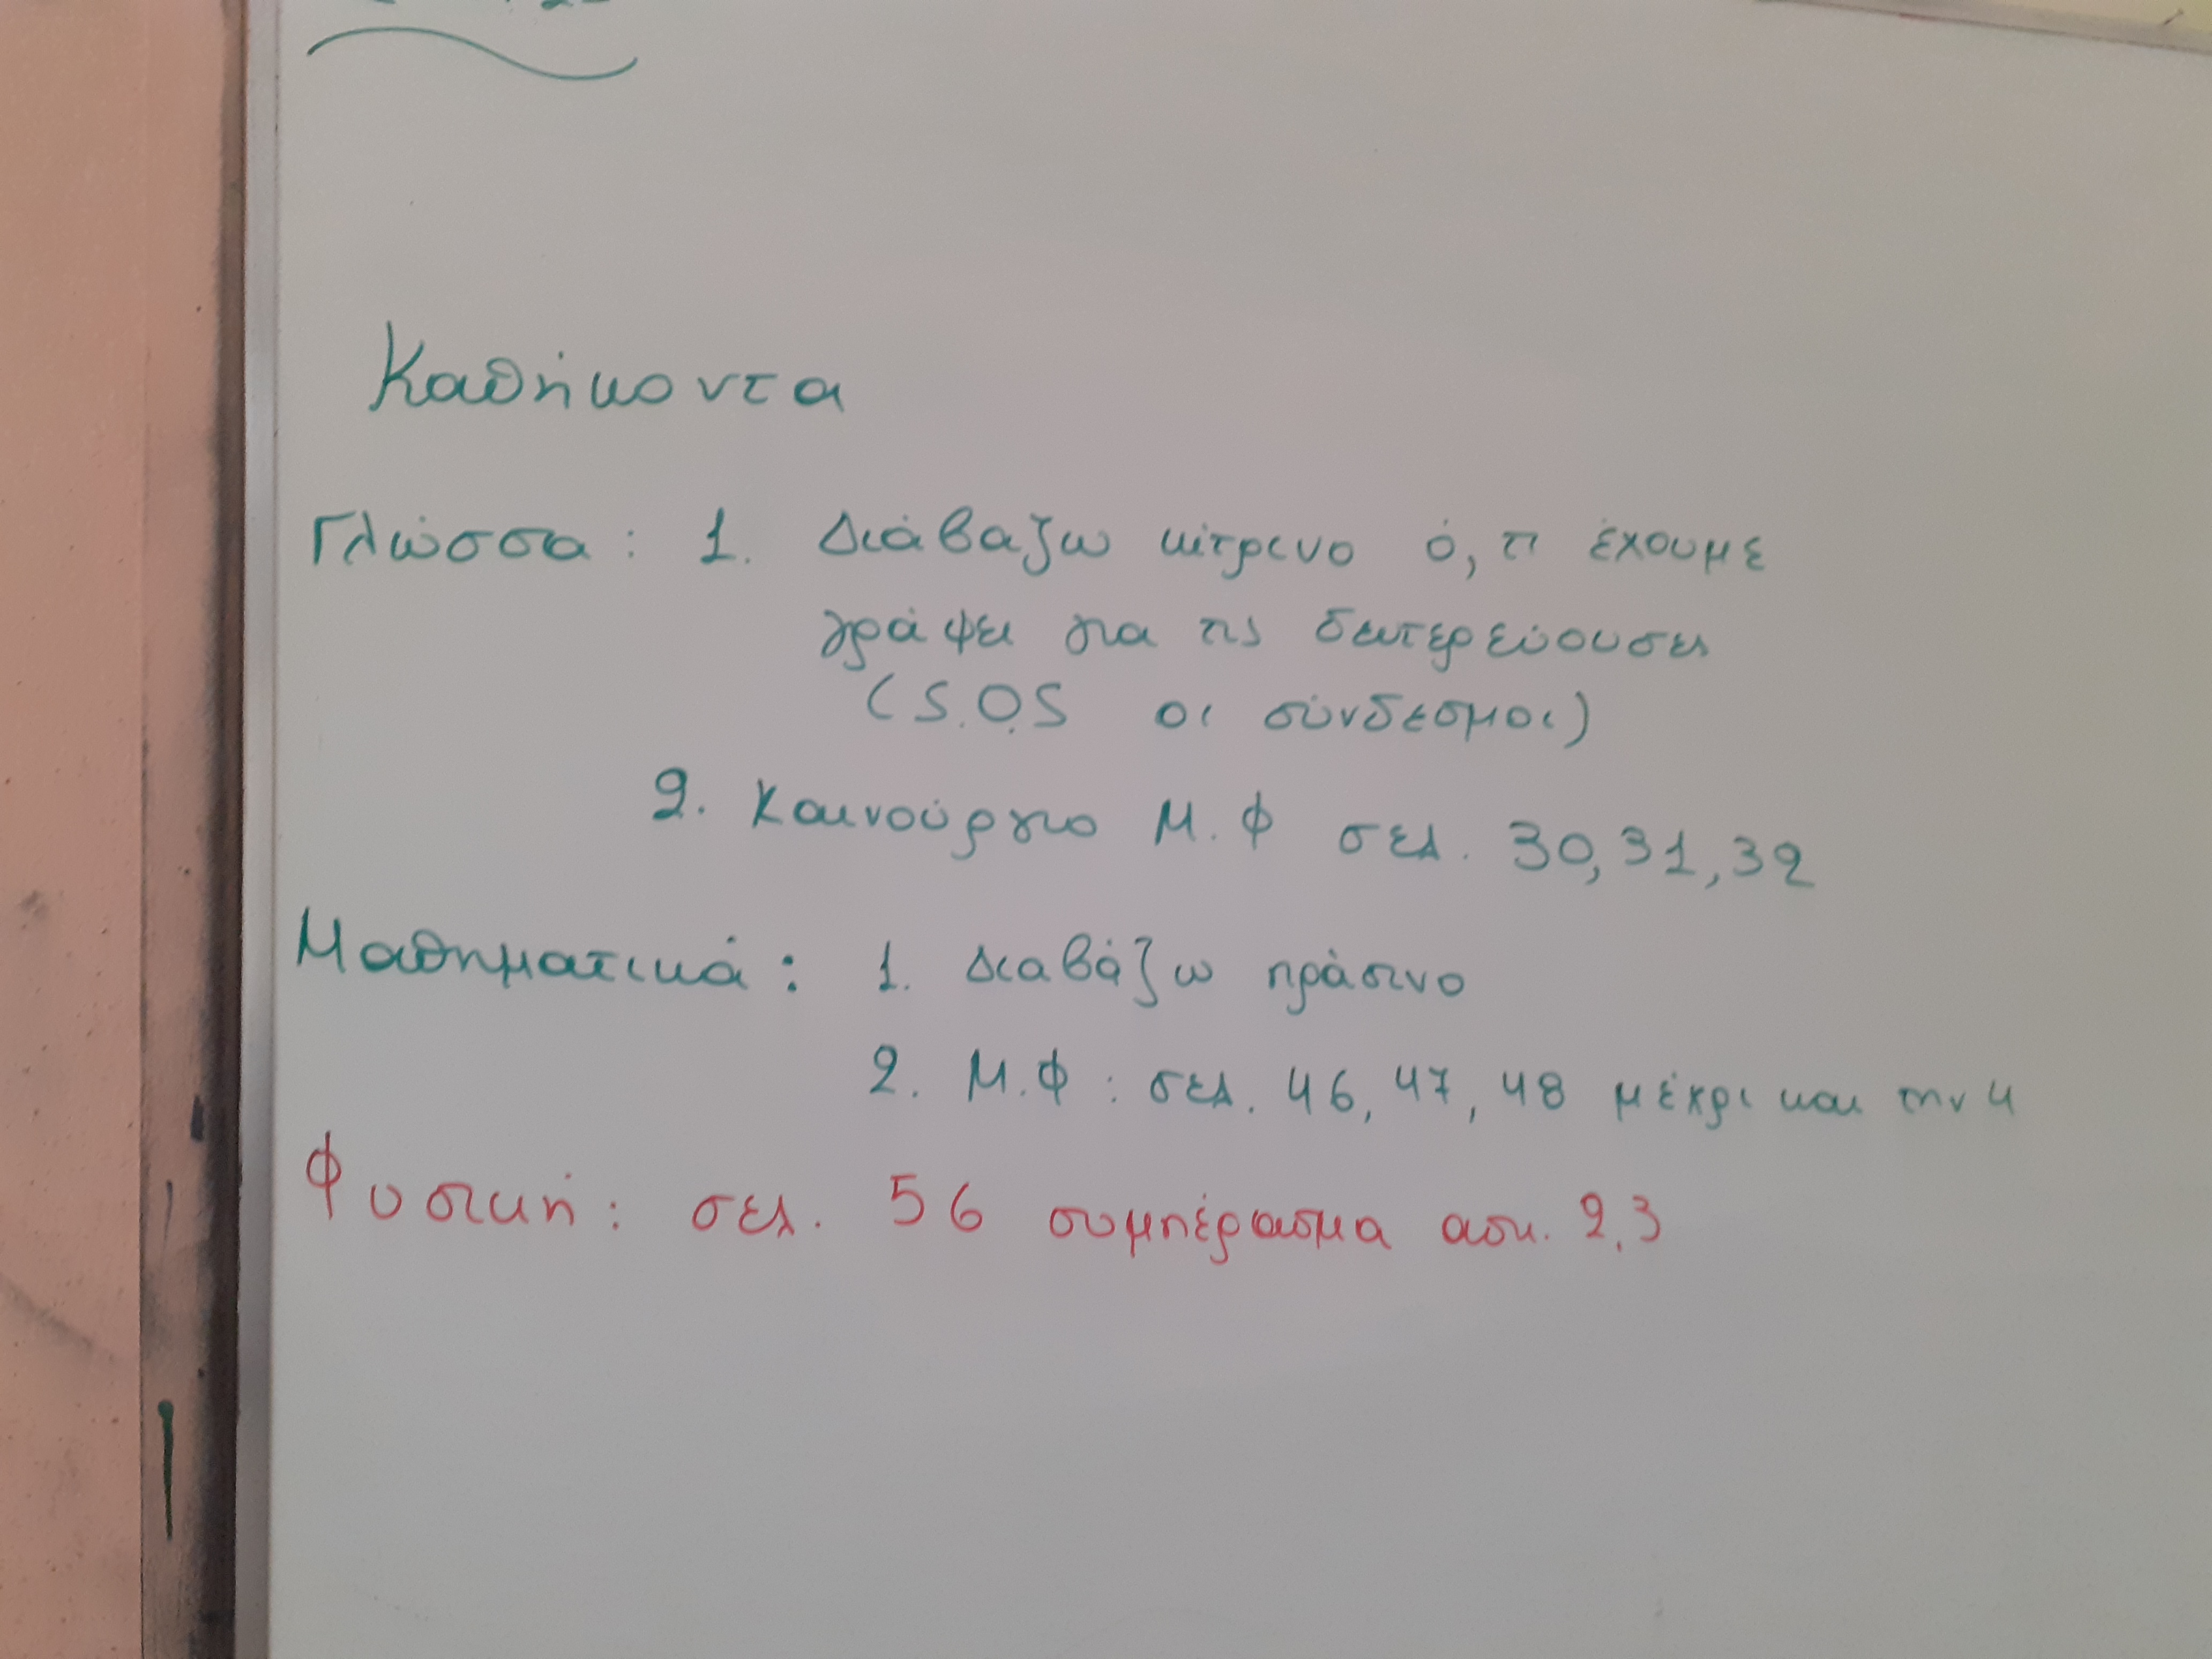 Καθήκοντα
Γλώσσα : 1. Διάβαζω κίτρινο ό,τι έχουμε
γράψει για τις δευτερεύουσες
(S.O.S οι σύνδεσμοι)
2. Καινούργιο Μ.Φ σελ. 30,31,32
Μαθηματικά : 1. Διαβάζω πράσινο
2. Μ.Φ : σελ. 46, 47, 48 μέχρι και την 4
Φυσική : σελ. 56 συμπέρασμα ασκ. 2,3